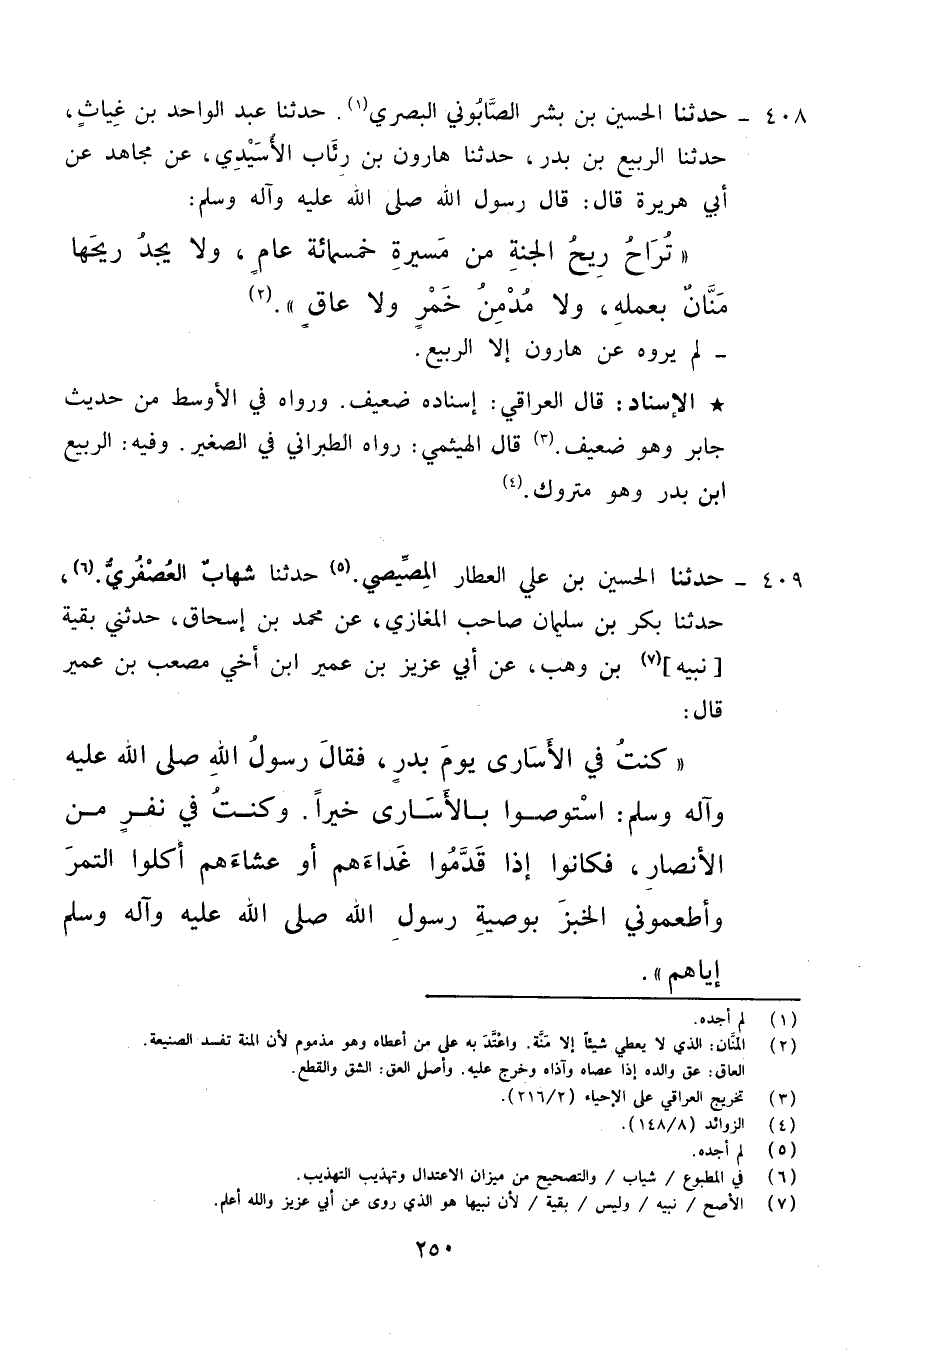 ٤٠٨ ـ حدثنا الحسين بن بشر الصَّابُوني البصري(١). حدثنا عبد الواحد بن غِياثٍ،
حدثنا الربيع بن بدر، حدثنا هارون بن رئَاب الأُسَيْدِي، عن مجاهد عن
أبي هريرة قال: قال رسول الله صلى الله عليه وآله وسلم:
« تُرَاحُ رِيحُ الجنةِ من مَسيرةِ خمسمائة عامٍ، ولا يجدُ ريحَها
مَنَّانٌ بعملهِ، ولا مُدْمِنُ خَمْرٍ ولا عاقٍ ».(٢)
ـ لم يروه عن هارون إلا الربيع.
★ الإسناد: قال العراقي: إسناده ضعيف. ورواه في الأوسط من حديث
جابر وهو ضعيف.(٣) قال الهيثمي: رواه الطبراني في الصغير. وفيه: الربيع
ابن بدر وهو متروك.(٤)
٤٠٩ ـ حدثنا الحسين بن علي العطار المِصِّيصي.(٥) حدثنا شهابٌ العُصْفُريُّ.(٦)،
حدثنا بكر بن سليمان صاحب المغازي، عن محمد بن إسحاق، حدثني بقية
[نبيه](٧) بن وهب، عن أبي عزيز بن عمير ابن أخي مصعب بن عمير
قال:
« كنتُ في الأَسَارى يومَ بدرٍ، فقالَ رسولُ اللهِ صلى الله عليه
وآله وسلم: اسْتوصوا بالأَسَارى خيراً. وكنتُ في نفرٍ من
الأنصارِ، فكانوا إذا قَدَّمُوا غَداءَهم أو عشاءَهم أكلوا التمرَ
وأطعموني الخبزَ بوصيةِ رسولِ الله صلى الله عليه وآله وسلم
إياهم ».
(١) لم أجده.
(٢) المنَّان: الذي لا يعطي شيئاً إلا مَنَّة. واعْتَّدَ به على من أعطاه وهو مذموم لأن المنة تفسد الصنيعة.
العاق: عق والده إذا عصاه وآذاه وخرج عليه. وأصل العق: الشق والقطع.
(٣) تخريج العراقي على الإحياء (٢١٦/٢).
(٤) الزوائد (١٤٨/٨).
(٥) لم أجده.
(٦) في المطبوع / شياب / والتصحيح من ميزان الاعتدال وتهذيب التهذيب.
(٧) الأصح / نبيه / وليس / بقية / لأن نبيها هو الذي روى عن أبي عزيز والله أعلم.
٢٥٠